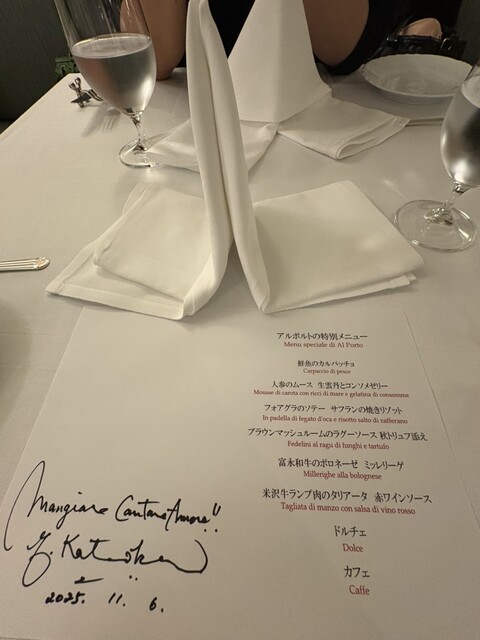 アルポルトの特別メニュー
Menu speciale di Al Porto
鮮魚のカルパッチョ
Carpaccio di pesce
人参のムース 生雲丹とコンソメゼリー
Mousse di carota con ricci di mare e gelatina di consomme
フォアグラのソテー サフランの焼きリゾット
In padella di fegato d'oca e risotto salto di zafferano
ブラウンマッシュルームのラグーソース 秋トリュフ添え
Fedelini al ragu di funghi e tartufo
富永和牛のボロネーゼ ミッレリーゲ
Millerighe alla bolognese
米沢牛ランプ肉のタリアータ 赤ワインソース
Tagliata di manzo con salsa di vino rosso
ドルチェ
Dolce
カフェ
Caffe
Mangiare Cantare Amore!!
2025. 11. 6.